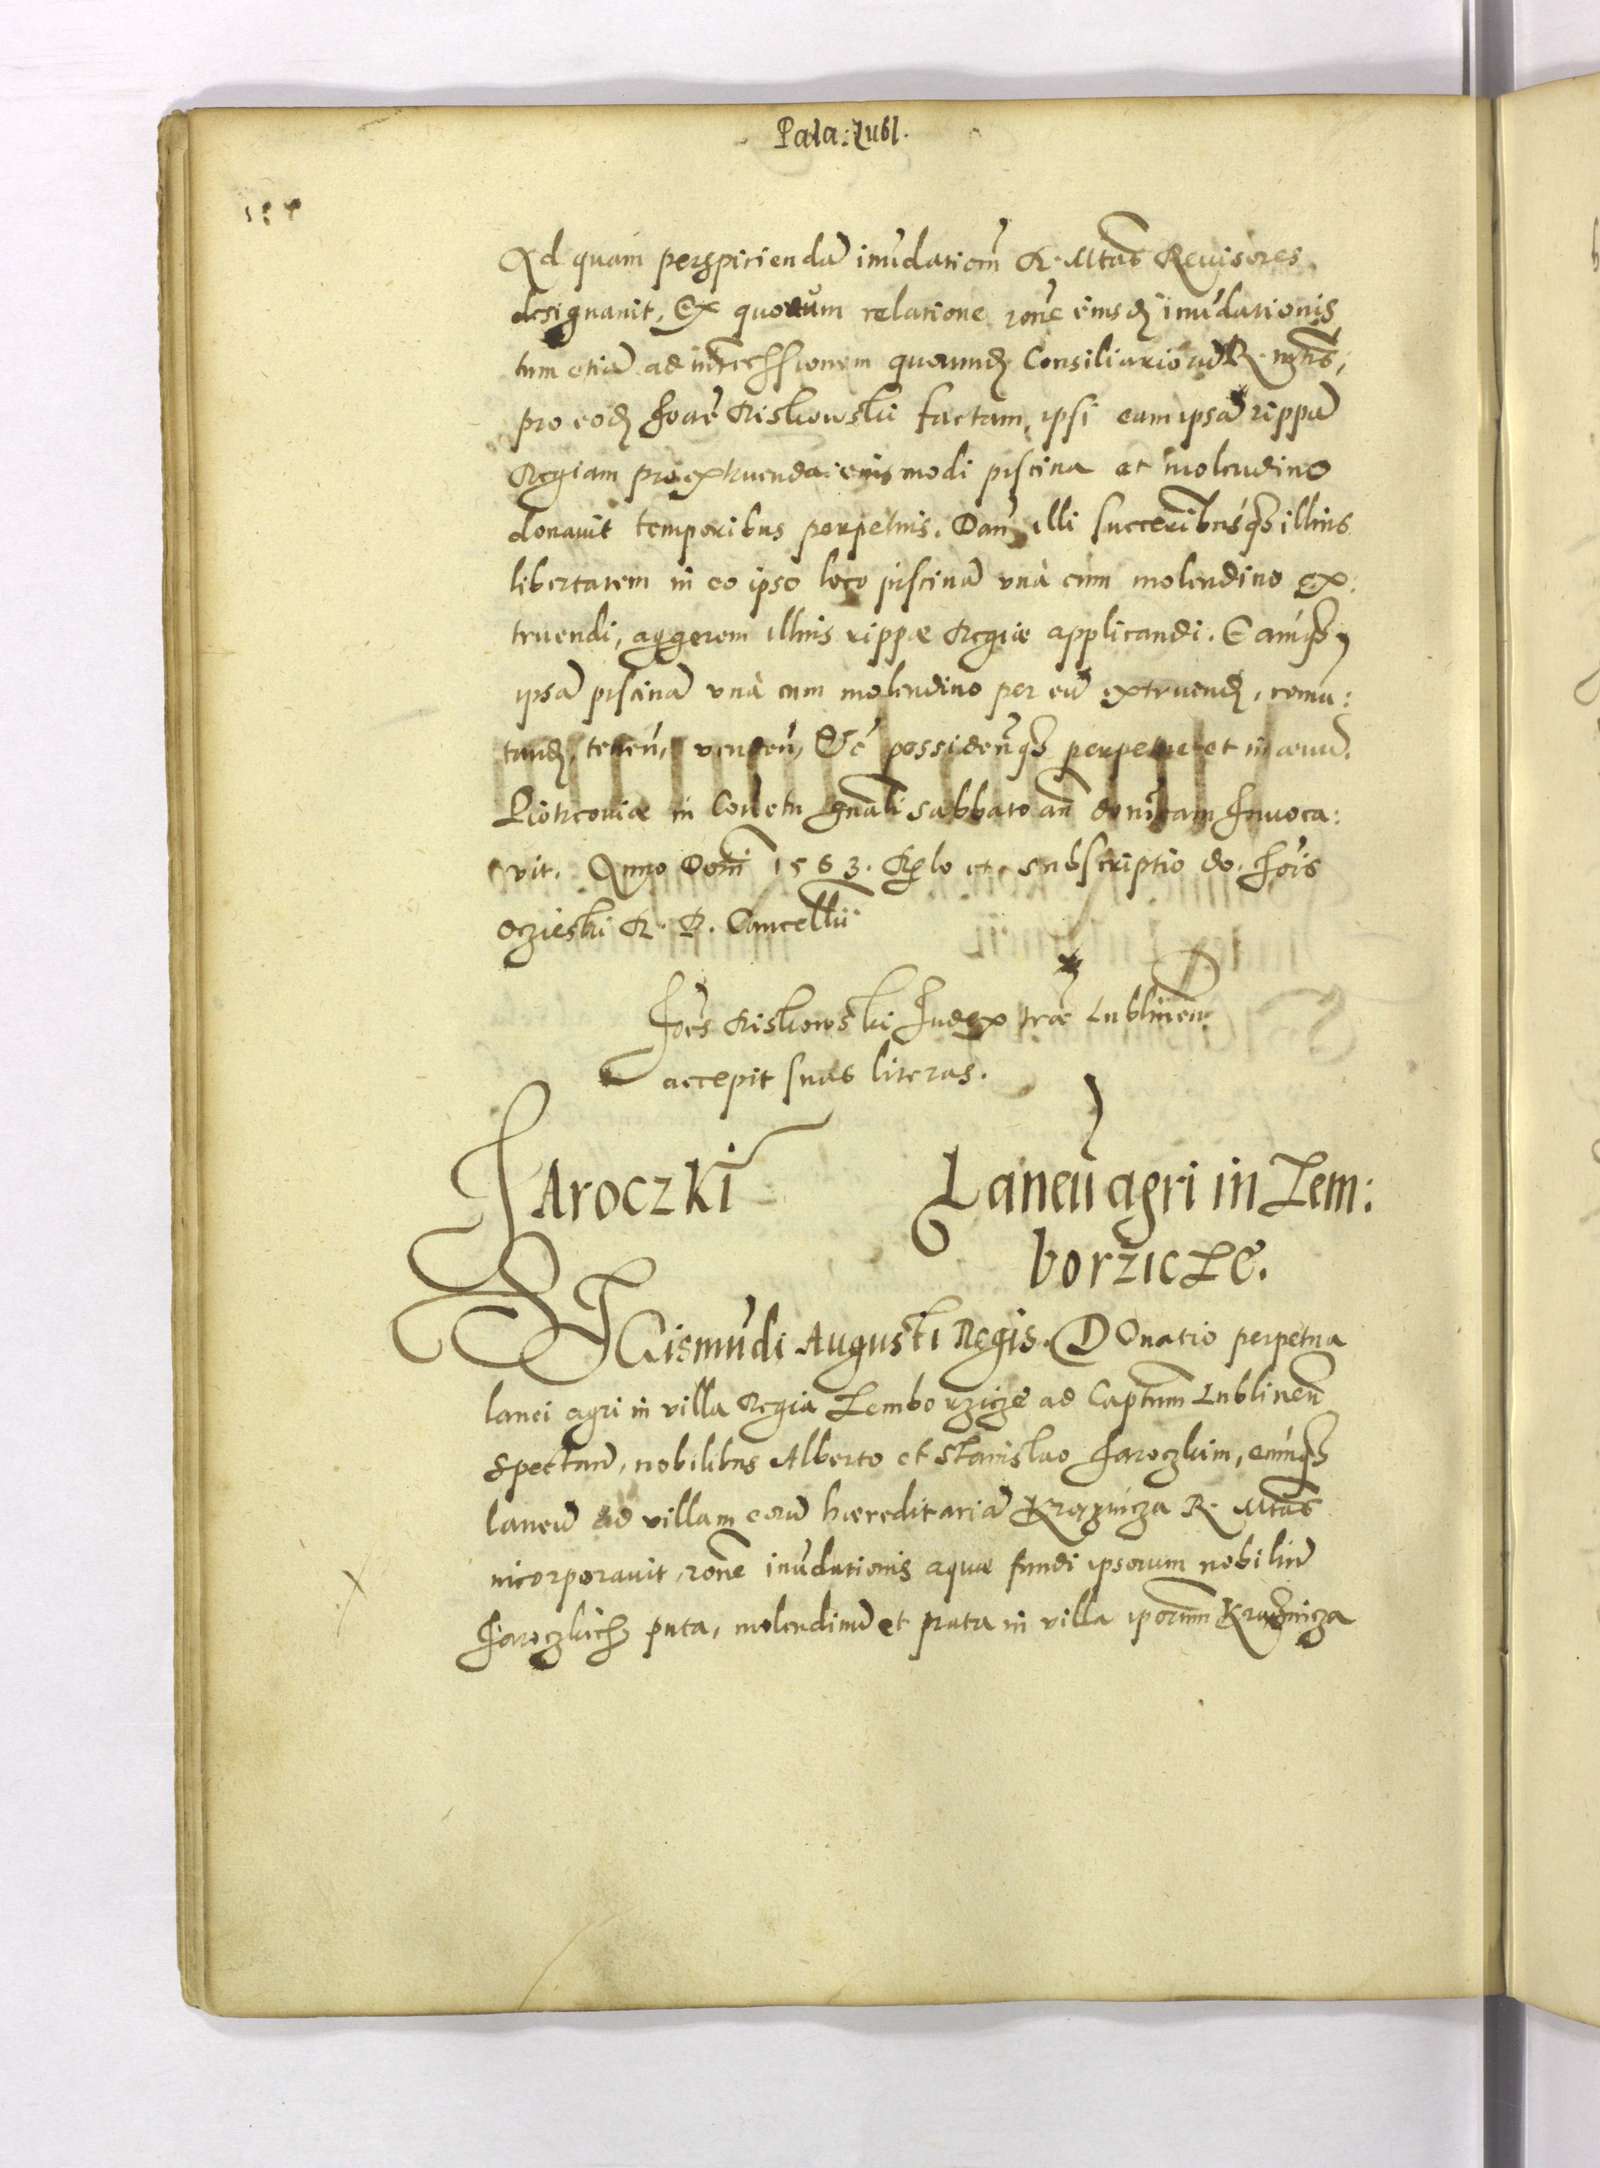 Pala: Lubl.
Ad quam perspiciendā inūdationē R. Mtas Reuisores
designauit, Ex quorum relatione rōne eiusdē inūdationis
tum etiā ad intercessionem quorundē Consiliariorū R. Mtis,
pro eodē Joāe Riskowski factam, ipsi eam ipsā rippā
Regiam pro extruenda eiusmodi piscina et molendino
donauit temporibus perpetuis. Dan̄ illi succeribusq3 illius
libertatem in eo ipso loco piscinā vnà cum molendino ex:
truendi, aggerem illius rippæ Regiæ applicandi. Eamq3
ipsā piscinā vnà cum molendino per eū extruend, comu:
tand, teneñ, vendeñ, &c possidenq3 perpetue et in æuū.
Piotrcouiæ in Conetu gnali sabbato añ donicam Inuoca:
vit. Anno Domi 1563. Rglo et subscriptio do. Jois
Oczieski R. P. Cancellii
Joēs Riskowski Judex træ Lublineñ
accepit suas literas.
JAroczki Laneū agri in Zem:
borzicze.
SIGismūdi Augusti Regis. DOnatio perpetua
lanei agri in villa Regia Zemborzicze ad Captum Lublineñ
spectañ, nobilibus Alberto et Stanislao Jaroczkim, eumq3
laneū ad villam eorū hæreditariā Krężnicza R. Mtas
incorporauit, rōne inūdationis aquæ fundi ipsorum nobiliū
Jaroczkich puta, molendinū et prata in villa ipsorum Krężnicza